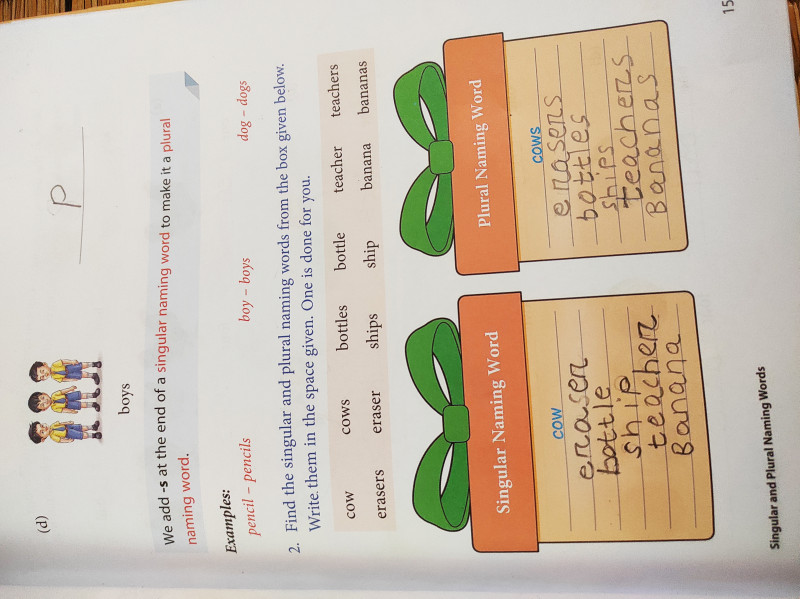 (d)
boys
P
We add -s at the end of a singular naming word to make it a plural
naming word.
Examples:
pencil – pencils boy – boys dog – dogs
2. Find the singular and plural naming words from the box given below.
Write them in the space given. One is done for you.
cow cows bottles bottle teacher teachers
erasers eraser ships ship banana bananas
Singular Naming Word
cow
eraser
bottle
ship
teacher
Banana
Plural Naming Word
cows
erasers
bottles
ships
teachers
Bananas
Singular and Plural Naming Words
15